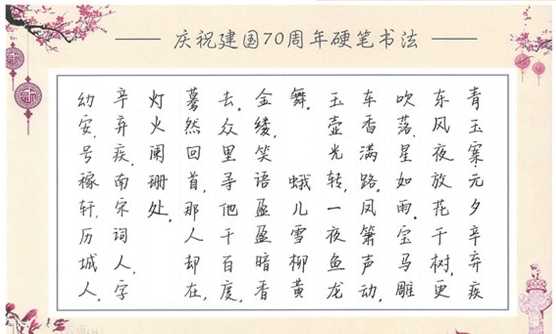 庆祝建国70周年硬笔书法
青玉案元夕辛弃疾
东风夜放花千树，更
吹落，星如雨。宝马雕
车香满路。凤箫声动，
玉壶光转，一夜鱼龙
舞。 蛾儿雪柳黄
金缕，笑语盈盈暗香
去。众里寻他千百度，
蓦然回首，那人却在，
灯火阑珊处。
辛弃疾，南宋词人，字
幼安，号稼轩，历城人。